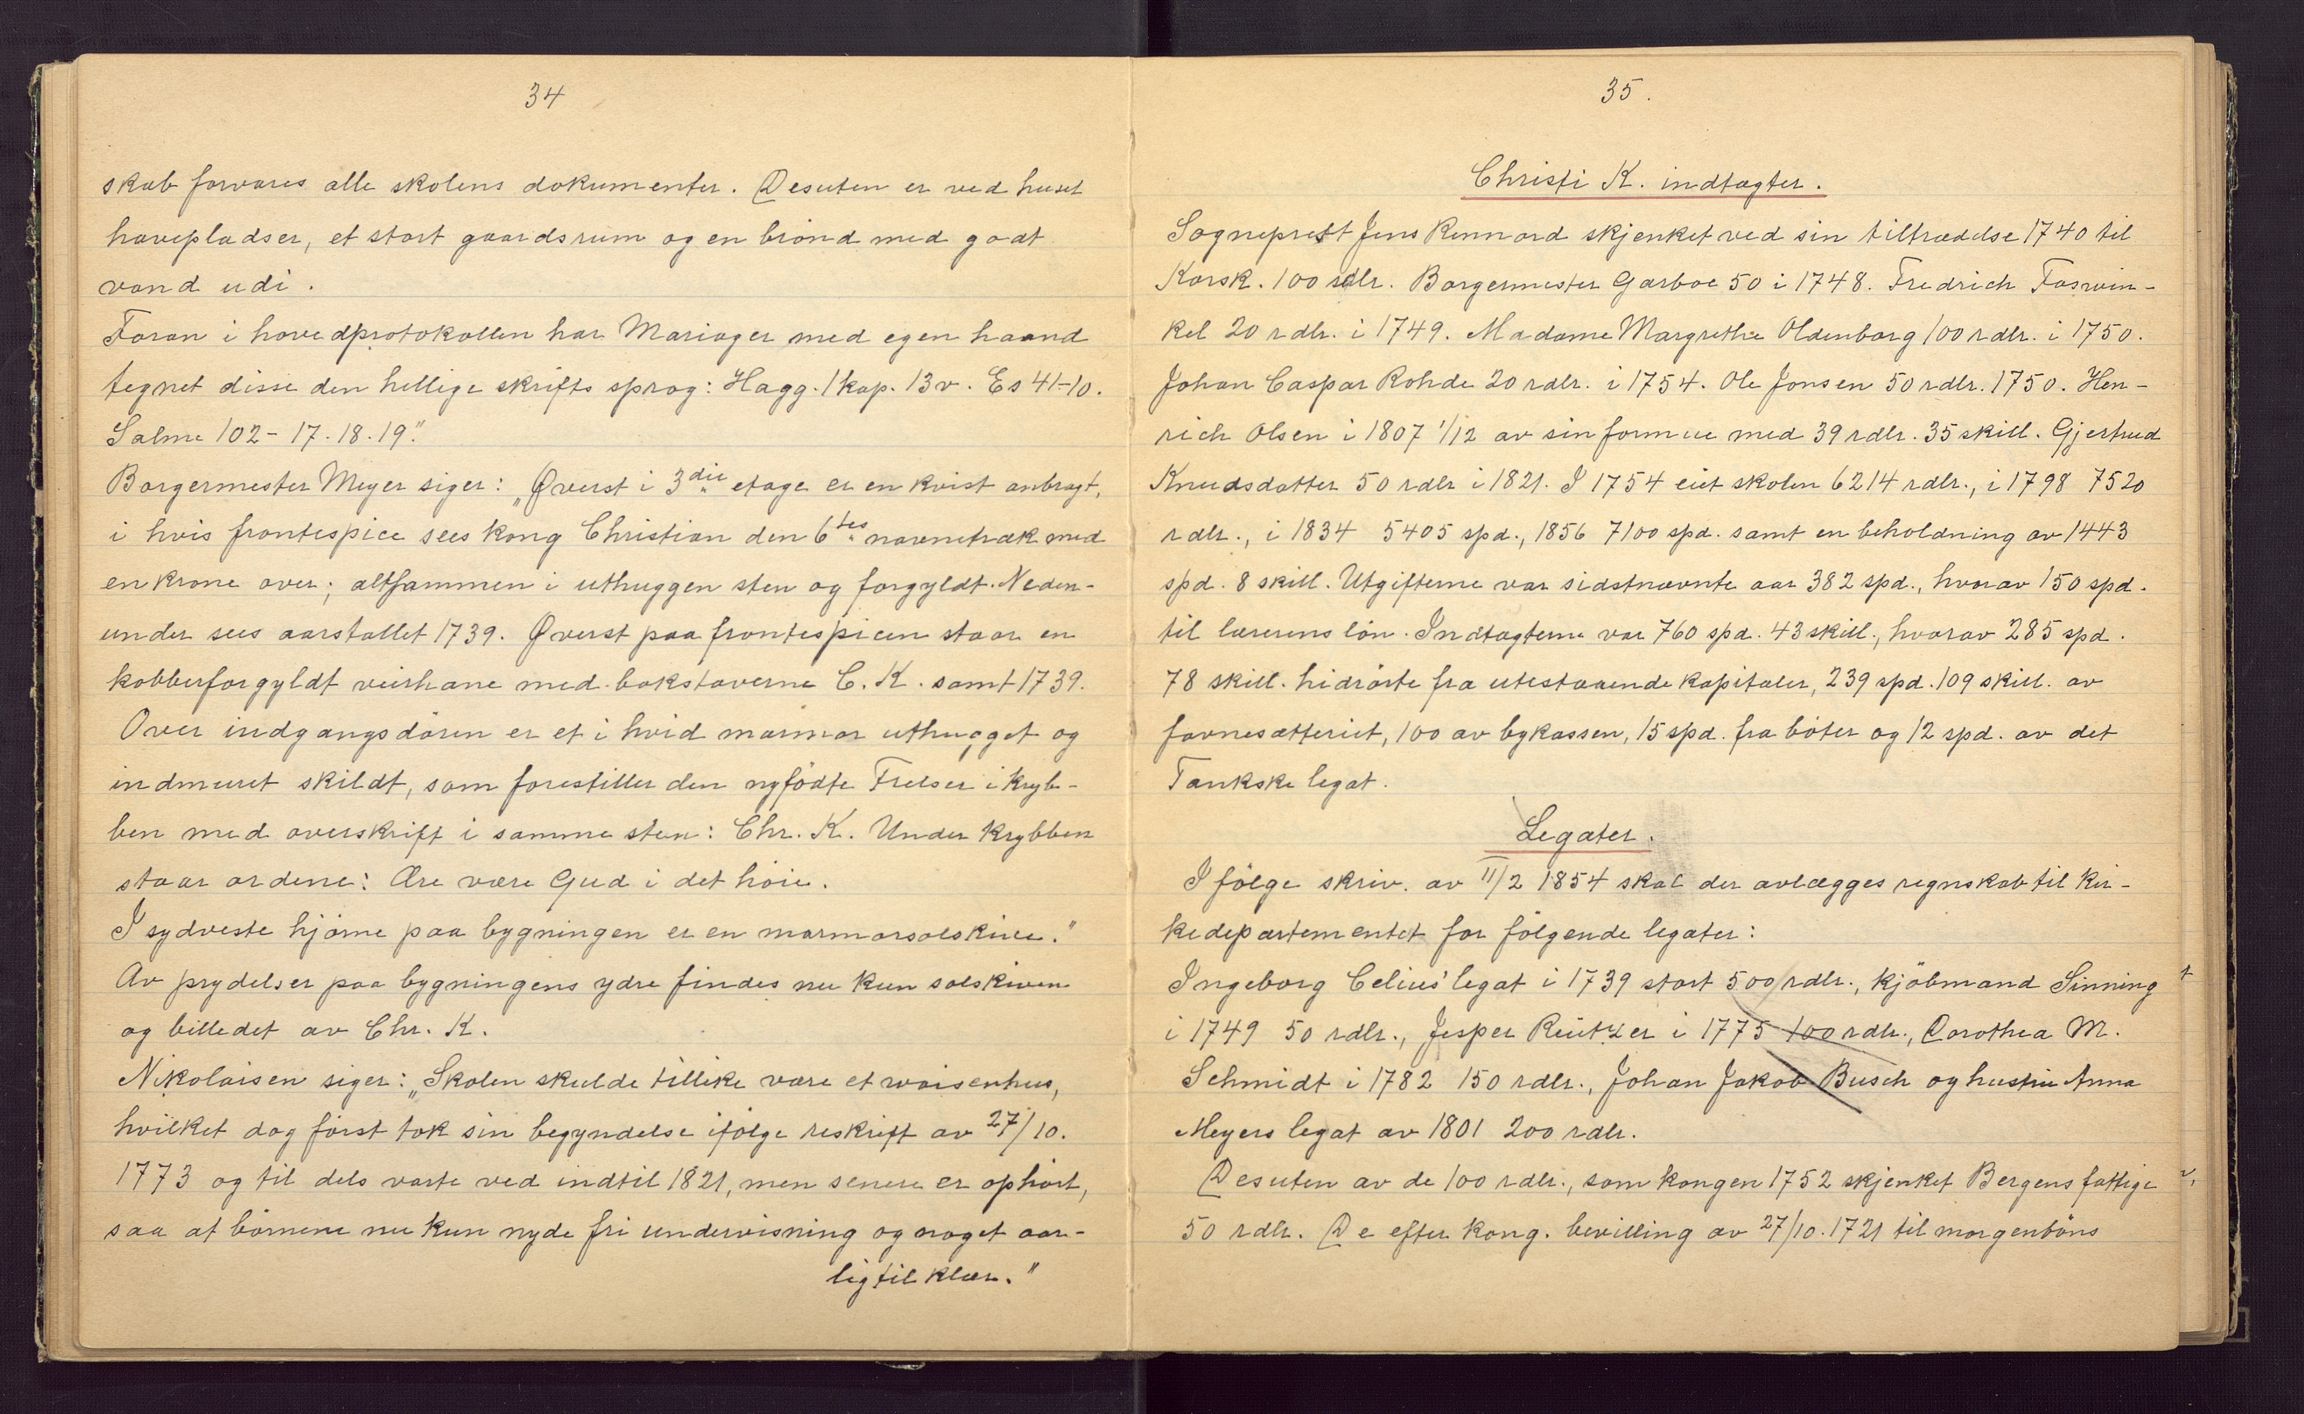 34
skab forvares alle skolens dokumenter. Desuten er ved huset
havepladser, et stort gaardsrum og en brönd med godt
vand udi.
Foran i hovedprotokollen har Mariager med egen haand
tegnet disse den hellige skrifts sprog: Hagg. 1 kap. 13 v. Es 41-10.
Salme 102 - 17. 18. 19."
Borgermester Meyer siger: „Øverst i 3die etage er en kvist anbragt,
i hvis frontespice sees kong Christian den 6tes navnetræk med
en krone over; altsammen i uthuggen sten og forgyldt. Neden-
under sees aarstallet 1739. Øverst paa frontespicen staar en
kobberforgyldt veirhane med bokstaverne C. K. samt 1739.
Over indgangsdören er et i hvid marmor uthugget og
indmuret skildt, som forestiller den nyfödte Frelser i kryb-
ben med overskrift i samme sten: Chr. K. Under krybben
staar ordene: Ære være Gud i det höie.
I sydveste hjörne paa bygningen er en marmorsolskive."
Av prydelser paa bygningens ydre findes nu kun solskiven
og billedet av Chr. K.
Nikolaisen siger: „Skolen skulde tillike være et waisenhus,
hvilket dog först tok sin begyndelse ifölge reskript av 27/10.
1773 og til dels varte ved indtil 1821, men senere er ophört,
saa at börnene nu kun nyde fri undervisning og noget aar-
lig til klær."
35.
Christi K. indtægter.
Sogneprest Jens Rennord skjenket ved sin tiltrædelse 1740 til
Korsk. 100 rdlr. Borgermester Garboe 50 i 1748. Fredrich Faswin-
kel 20 rdlr. i 1749. Madame Margrethe Oldenborg 100 rdlr. i 1750.
Johan Caspar Rohde 20 rdlr. i 1754. Ole Jonsen 50 rdlr. 1750. Hen-
rich Olsen i 1807 1/12 av sin formue med 39 rdlr. 35 skill. Gjertrud
Knudsdatter 50 rdlr i 1821. I 1754 eiet skolen 6214 rdlr., i 1798 7520
rdlr., i 1834 5405 spd., 1856 7100 spd. samt en beholdning av 1443
spd. 8 skill. Utgifterne var sidstnævnte aar 382 spd., hvorav 150 spd.
til lærerens lön. Indtægterne var 760 spd. 43 skill., hvorav 285 spd.
78 skill. hidrörte fra utestaaende kapitaler, 239 spd. 109 skill. av
favnesætteriet, 100 av bykassen, 15 spd. fra böter og 12 spd. av det
Tankske legat.
Legater.
I fölge skriv. av 11/2 1854 skal der avlægges regnskab til kir-
kedepartementet for fölgende legater:
Ingeborg Celius' legat i 1739 stort 500 rdlr., kjöbmand Sinning
i 1749 50 rdlr., Jesper Reutzer i 1775 100 rdlr., Dorothea M.
Schmidt i 1782 150 rdlr., Johan Jakob Busch og hustru Anna
Meyers legat av 1801 200 rdlr.
Desuten av de 100 rdlr., som kongen 1752 skjenket Bergens fattige
50 rdlr. De efter kong. bevilling av 27/10. 1721 til morgenböns